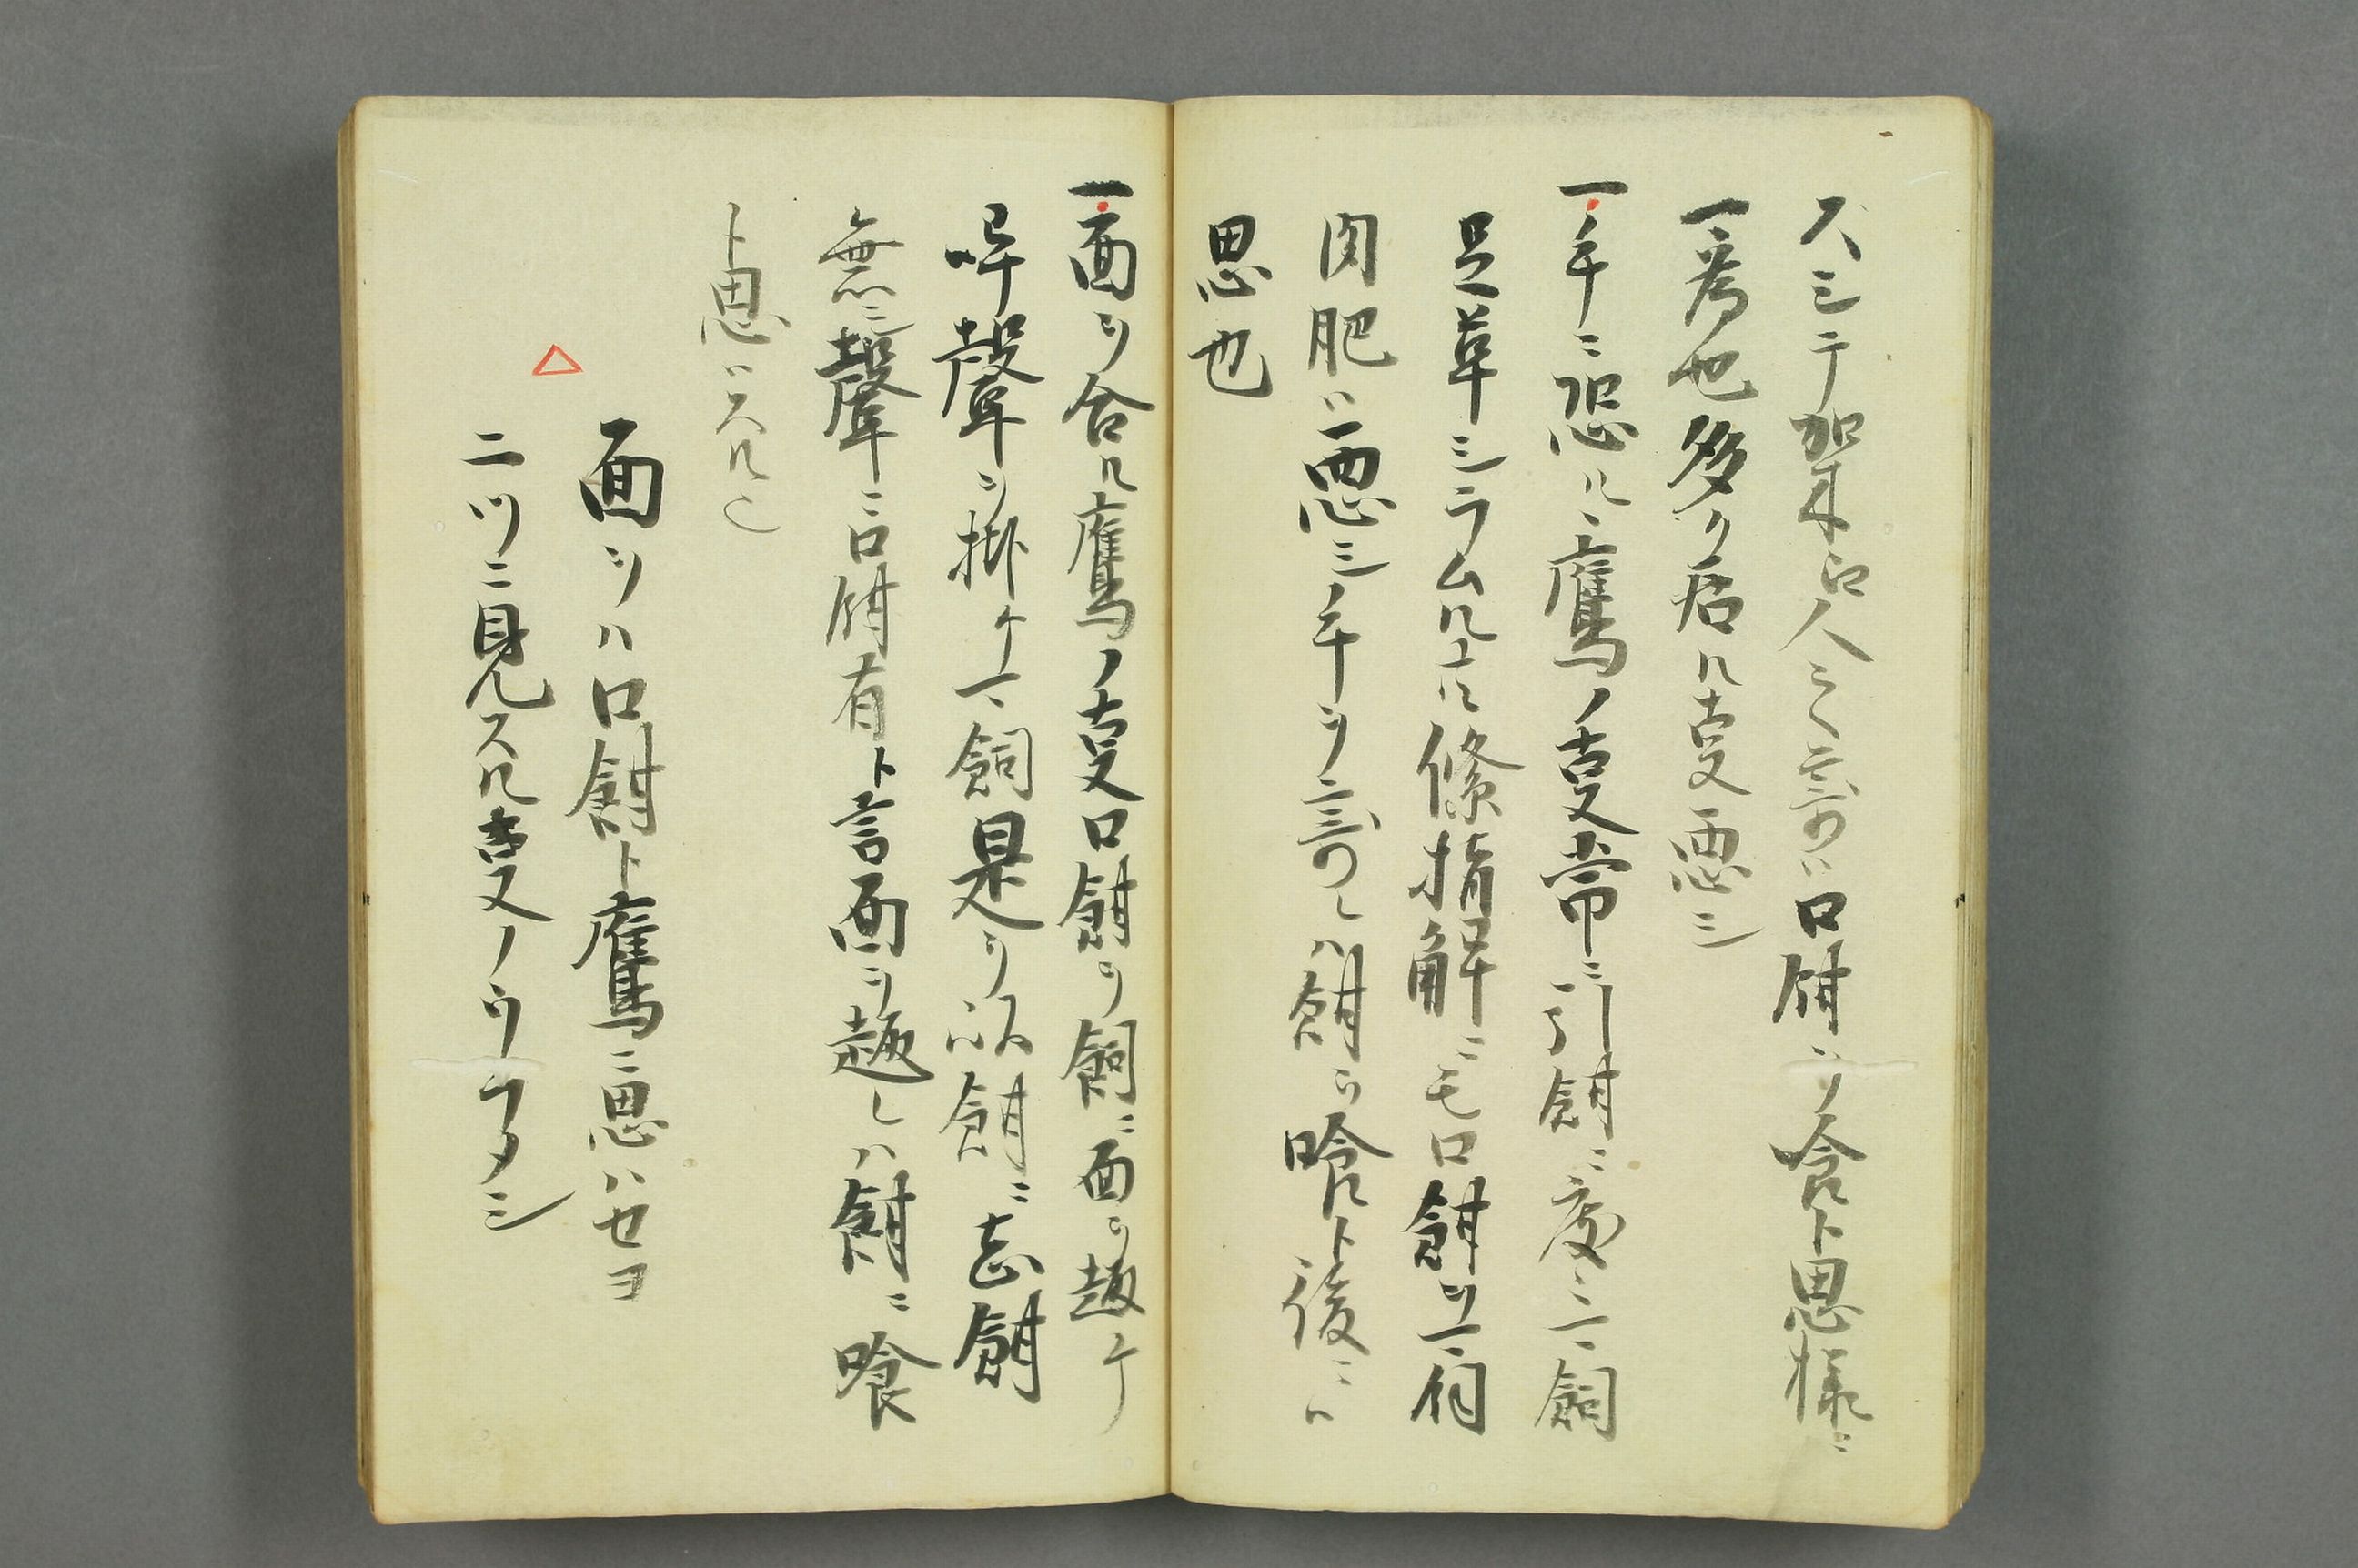 スシテ架木ニ人ミヘ寄ハ口餌ヲ含ト思様ニ
一考也多ク居ル事悪シ
一手ニ恐ルヽ鷹ノ事常ニ引餌ニ度ニ一飼
足革シラムル共絛指解ニモ口餌ヲ一飼
肉肥ハ悪シ手ヲ寄レハ餌ヲ喰ト後ニハ
思也
一面ヲ合ル鷹ノ事口餌ヲ飼ニ面ヲ趣ケ
呼聲ヲ掛ケ一飼是ヲ以餌ニ志餌
無ニ聲ニ口餌有ト言面ヲ趣レハ餌ニ喰
ト思ハスル也
△
面ヲハ口餌ト鷹ニ思ハセヨ
二ツニ見スル事ノウウタシ